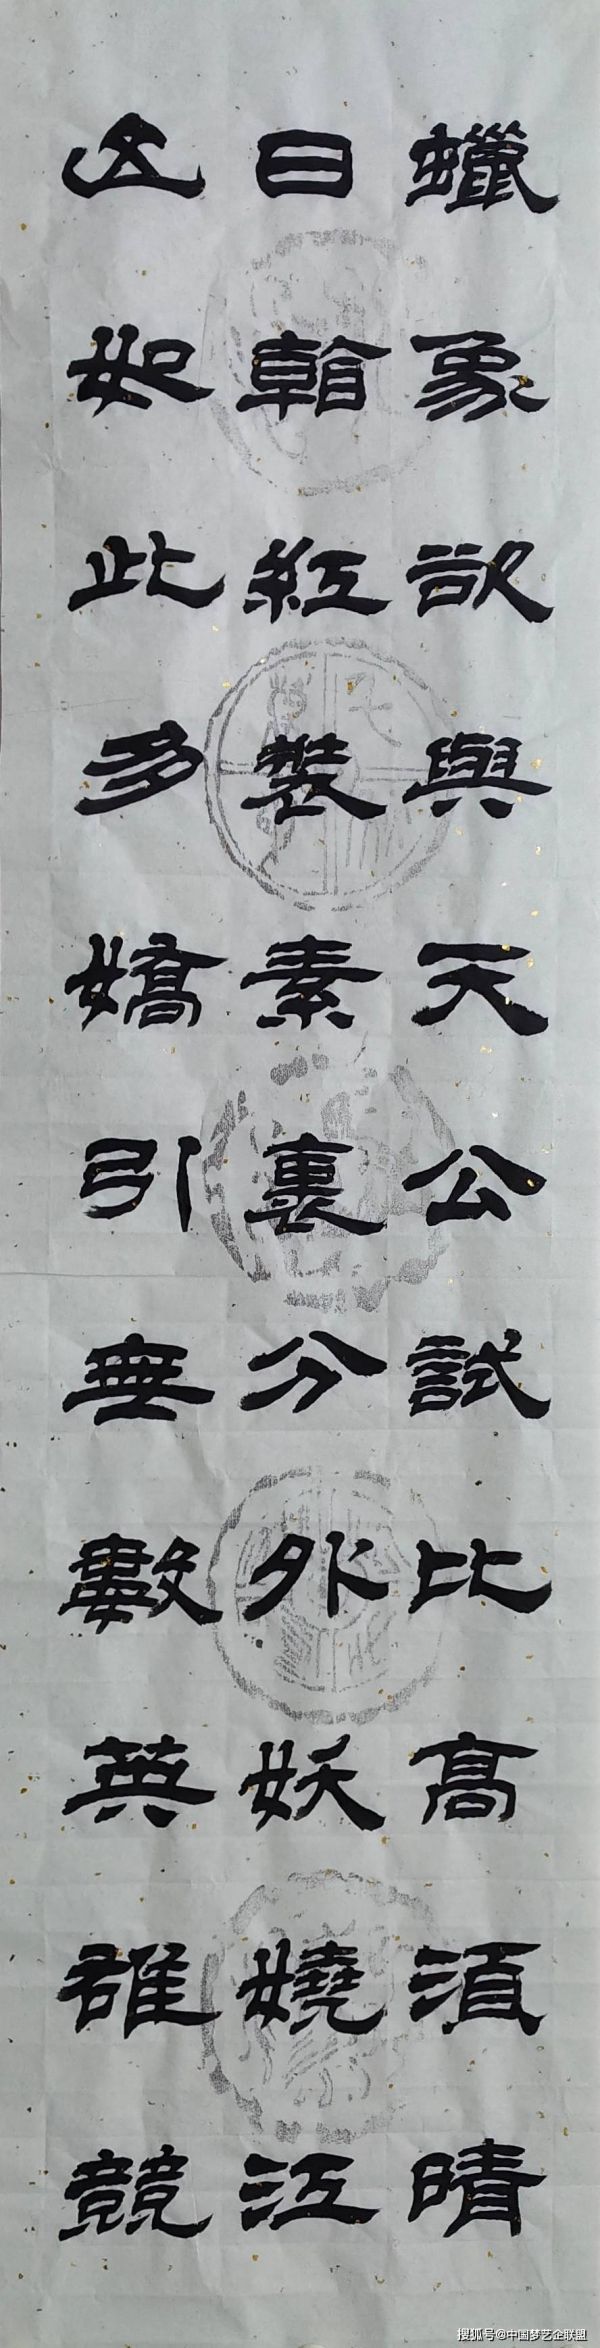 蠟象欲與天公試比高須晴
日紅裝素裹分外妖嬈江
山如此多嬌引無數英雄競
搜狐号@中国梦艺企联盟